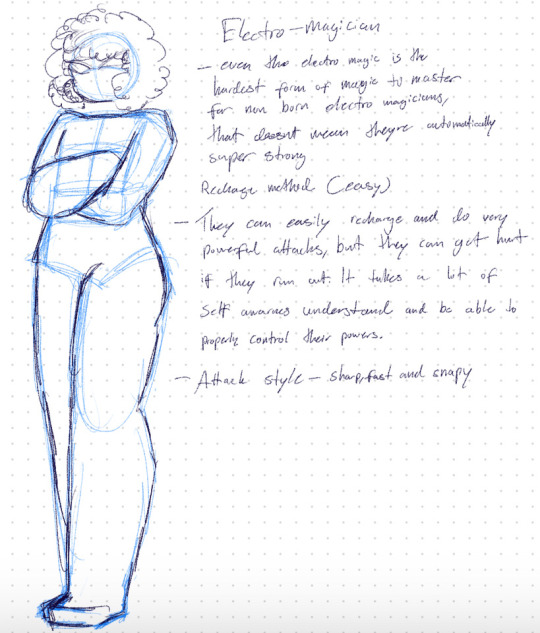 Electro-magician
- even tho electro magic is the
hardest form of magic to master
for non born electro magicians,
that doesnt mean theyre automatically
super strong
Rechage method (easy)
- They can easily recharge and do very
powerful attacks, but they can get hurt
if they run out. It takes a lot of
self awarnes understand and be able to
properly control their powers.
- Attack style - sharp, fast and snapy